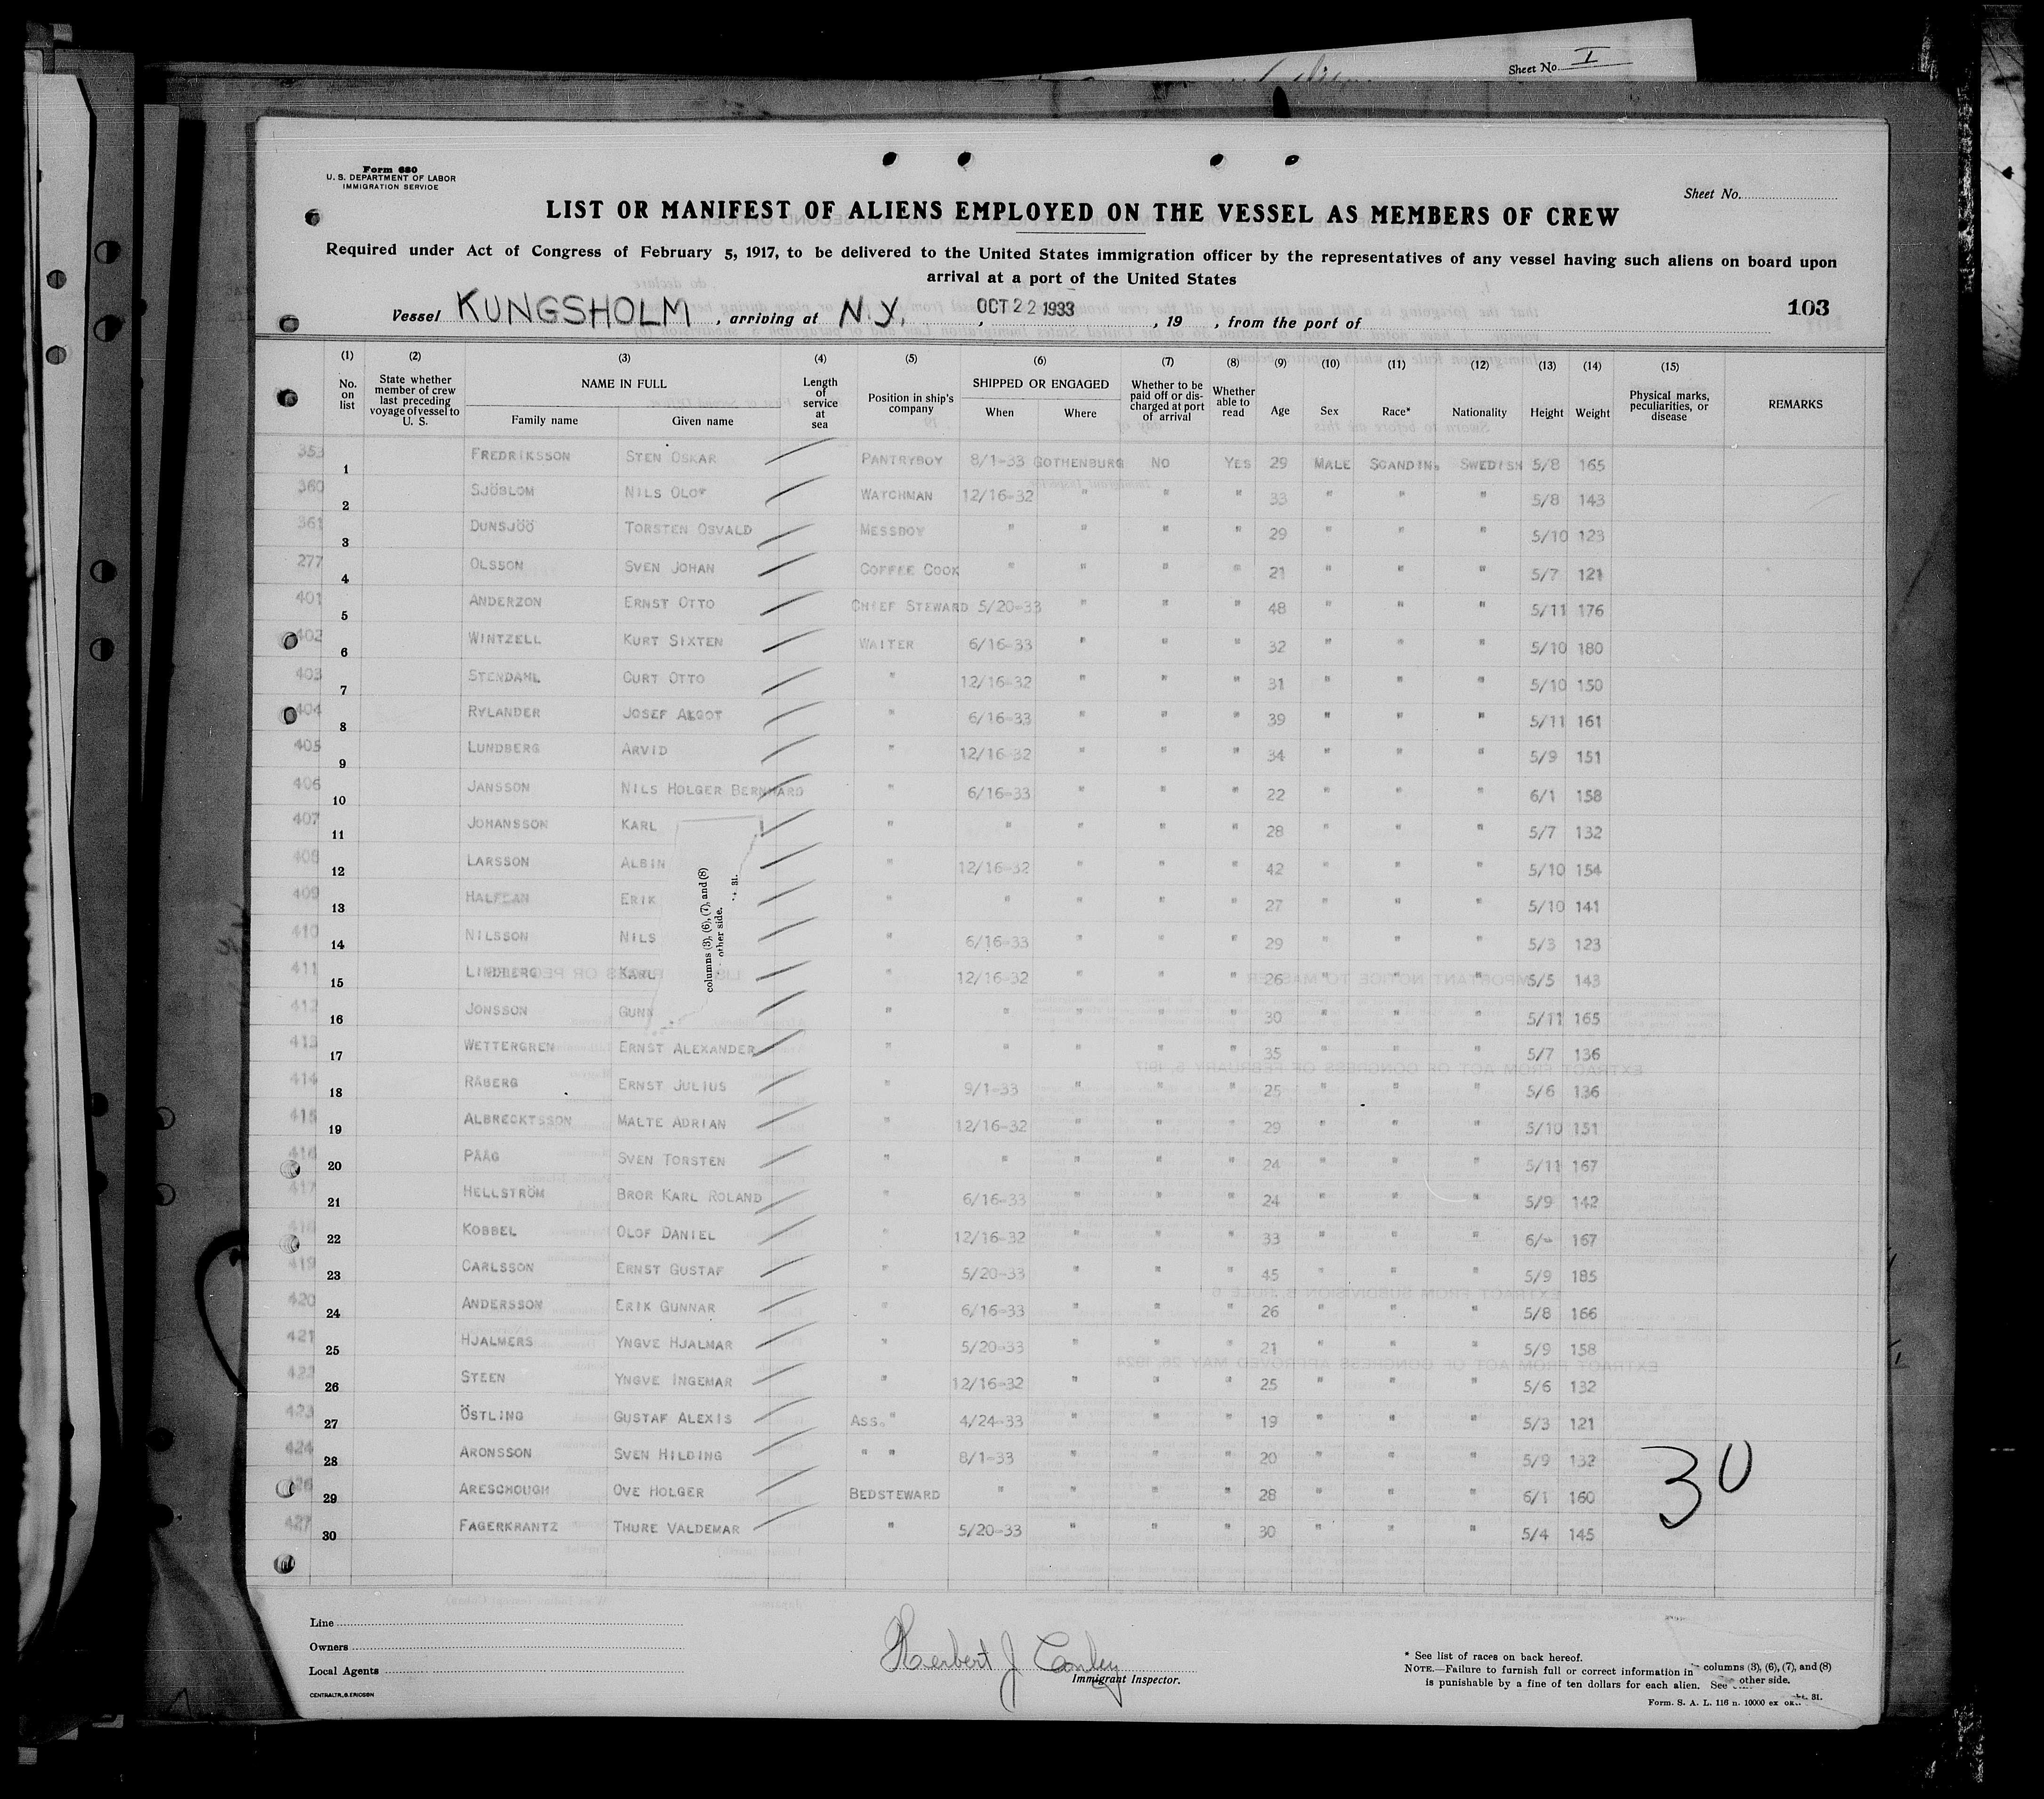 Sheet No. I
Form 680
U. S. DEPARTMENT OF LABOR
IMMIGRATION SERVICE
Sheet No.
LIST OR MANIFEST OF ALIENS EMPLOYED ON THE VESSEL AS MEMBERS OF CREW
Required under Act of Congress of February 5, 1917, to be delivered to the United States immigration officer by the representatives of any vessel having such aliens on board upon
arrival at a port of the United States
Vessel KUNGSHOLM, arriving at N.Y., OCT 22 1933, 19 , from the port of 103
(1) (2) (3) (4) (5) (6) (7) (8) (9) (10) (11) (12) (13) (14) (15)
No. on list | State whether member of crew last preceding voyage of vessel to U. S. | NAME IN FULL Family name Given name | Length of service at sea | Position in ship's company | SHIPPED OR ENGAGED When Where | Whether to be paid off or discharged at port of arrival | Whether able to read | Age | Sex | Race* | Nationality | Height | Weight | Physical marks, peculiarities, or disease | REMARKS
353 1 FREDRIKSSON STEN OSKAR PANTRYBOY 8/1-33 GOTHENBURG NO YES 29 MALE SCANDIN. SWEDISH 5/8 165
360 2 SJÖBLOM NILS OLOF WATCHMAN 12/16-32 " " " 33 " " " 5/8 143
361 3 DUNSJÖÖ TORSTEN OSVALD MESSBOY " " " " 29 " " " 5/10 123
277 4 OLSSON SVEN JOHAN COFFEE COOK " " " " 21 " " " 5/7 121
401 5 ANDERZON ERNST OTTO CHIEF STEWARD 5/20-33 " " " 48 " " " 5/11 176
402 6 WINTZELL KURT SIXTEN WAITER 6/16-33 " " " 32 " " " 5/10 180
403 7 STENDAHL CURT OTTO " 12/16-32 " " " 31 " " " 5/10 150
404 8 RYLANDER JOSEF ALGOT " 6/16-33 " " " 39 " " " 5/11 161
405 9 LUNDBERG ARVID " 12/16-32 " " " 34 " " " 5/9 151
406 10 JANSSON NILS HOLGER BERNHARD " 6/16-33 " " " 22 " " " 6/1 158
407 11 JOHANSSON KARL " " " " " 28 " " " 5/7 132
408 12 LARSSON ALBIN " 12/16-32 " " " 42 " " " 5/10 154
409 13 ERIK " " " " " 27 " " " 5/10 141
410 14 NILSSON NILS " 6/16-33 " " " 29 " " " 5/3 123
411 15 LINDBERG KARL " 12/16-32 " " " 26 " " " 5/5 143
412 16 JONSSON GUNN " " " " " 30 " " " 5/11 165
413 17 WETTERGREN ERNST ALEXANDER " " " " " 35 " " " 5/7 136
414 18 RÅBERG ERNST JULIUS " 9/1-33 " " " 25 " " " 5/6 136
415 19 ALBRECKTSSON MALTE ADRIAN " 12/16-32 " " " 29 " " " 5/10 151
416 20 PÅÅG SVEN TORSTEN " " " " " 24 " " " 5/11 167
417 21 HELLSTRÖM BROR KARL ROLAND " 6/16-33 " " " 24 " " " 5/9 142
418 22 KOBBEL OLOF DANIEL " 12/16-32 " " " 33 " " " 6/- 167
419 23 CARLSSON ERNST GUSTAF " 5/20-33 " " " 45 " " " 5/9 185
420 24 ANDERSSON ERIK GUNNAR " 6/16-33 " " " 26 " " " 5/8 166
421 25 HJALMERS YNGVE HJALMAR " 5/20-33 " " " 21 " " " 5/9 158
422 26 STEEN YNGVE INGEMAR " 12/16-32 " " " 25 " " " 5/6 132
423 27 ÖSTLING GUSTAF ALEXIS ASS. " 4/24-33 " " " 19 " " " 5/3 121
424 28 ARONSSON SVEN HILDING " " 8/1-33 " " " 20 " " " 5/9 132
426 29 ARESCHOUGH OVE HOLGER BEDSTEWARD " " " " 28 " " " 6/1 160
427 30 FAGERKRANTZ THURE VALDEMAR " 5/20-33 " " " 30 " " " 5/4 145
columns (3), (6), (7), and (8)
other side.
31.
30
Line
Owners
Local Agents
CENTRALTR., G. ERICSSN
Herbert J Conley
Immigrant Inspector.
* See list of races on back hereof.
NOTE.—Failure to furnish full or correct information in columns (3), (6), (7), and (8)
is punishable by a fine of ten dollars for each alien. See other side.
Form. S. A. L. 116 n. 10000 ex 31.